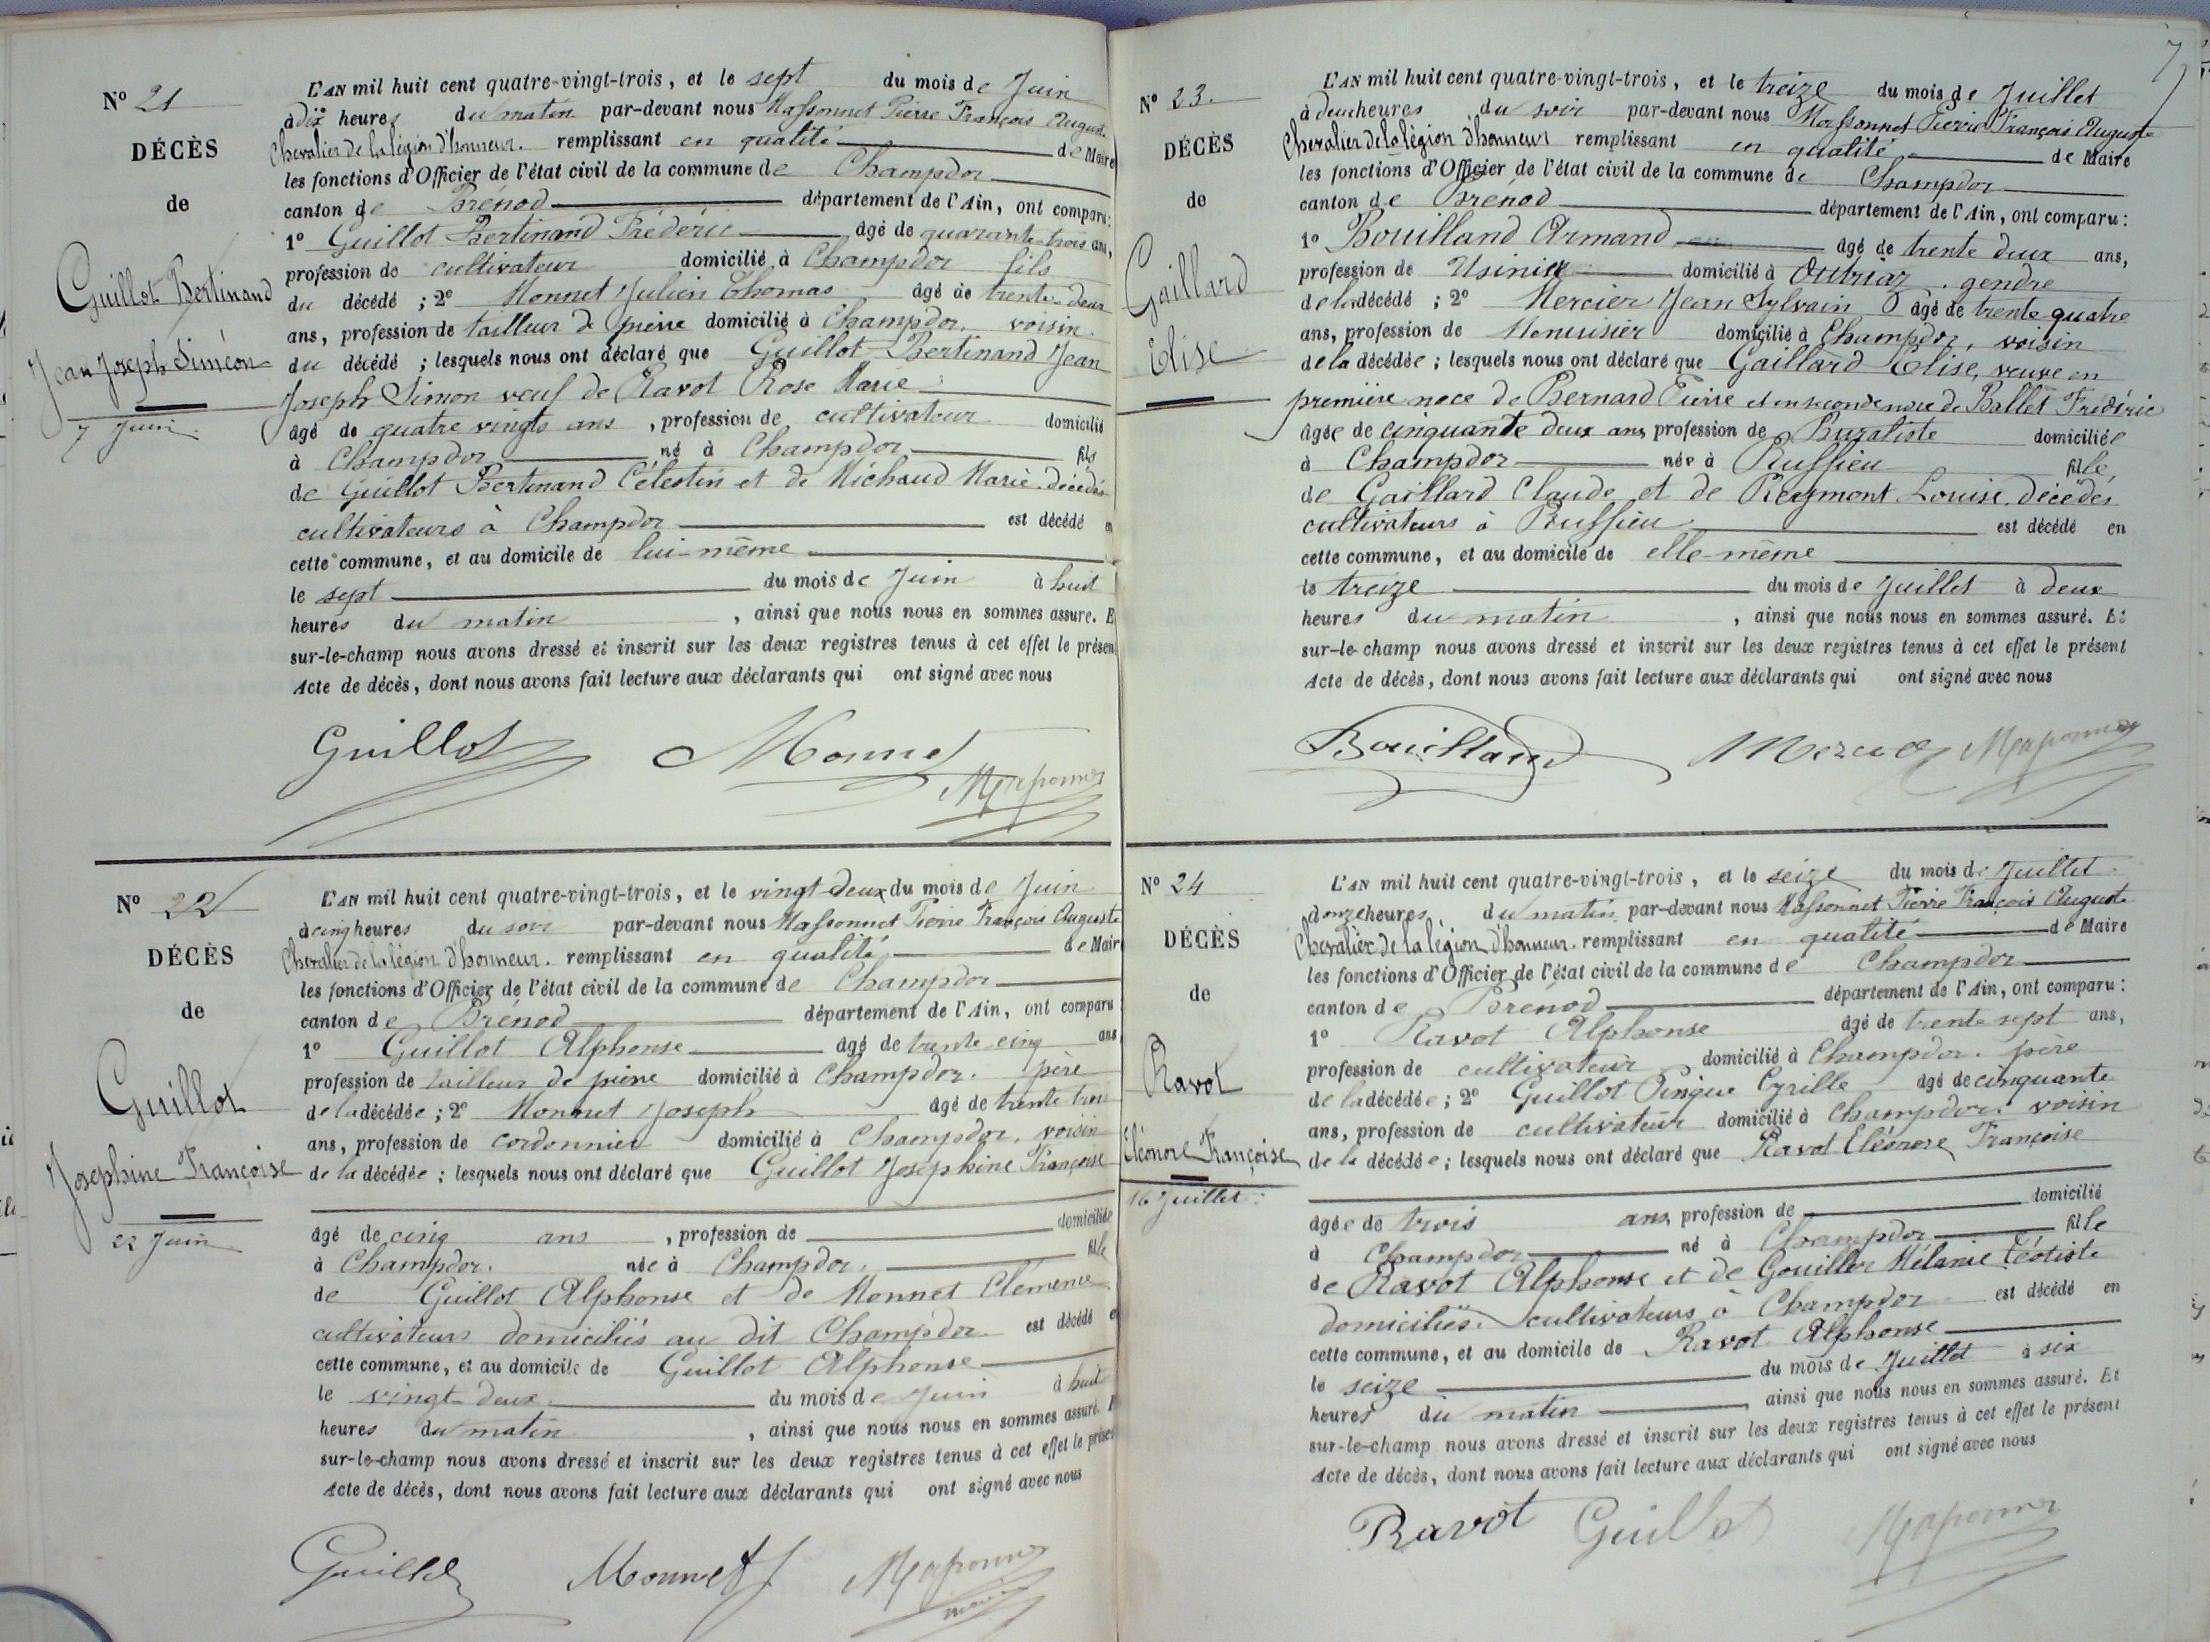 No 21
DÉCÈS
de
Guillot Bertinand
Jean Joseph Siméon
7 Juin
L'AN mil huit cent quatre-vingt-trois, et le sept du mois de Juin
à dix heures du matin par-devant nous Massonnet Pierre François Auguste
Chevalier de la légion d'honneur. remplissant en qualité de Maire
les fonctions d'Officier de l'état civil de la commune de Champdor
canton de Brénod département de l'Ain, ont comparu:
1º Guillot Bertinand Fréderic âgé de quarante trois ans,
profession de cultivateur domicilié à Champdor fils
du décédé ; 2º Monnet Julien Thomas âgé de trente deux
ans, profession de tailleur de pierre domicilié à Champdor. voisin
du décédé ; lesquels nous ont déclaré que Guillot Bertinand Jean
Joseph Simon veuf de Ravot Rose Marie
âgé de quatre vingts ans , profession de cultivateur domicilié
à Champdor né à Champdor fils
de Guillot Bertinand Célestin et de Michaud Marie décédés
cultivateurs à Champdor est décédé en
cette commune, et au domicile de lui-même
le sept du mois de Juin à huit
heures du matin , ainsi que nous nous en sommes assuré. E
sur-le-champ nous avons dressé et inscrit sur les deux registres tenus à cet effet le présen
Acte de décès, dont nous avons fait lecture aux déclarants qui ont signé avec nous
Guillot Monnet Massonnet
No 22
DÉCÈS
de
Guillot
Josephine Françoise
22 Juin
L'AN mil huit cent quatre-vingt-trois, et le vingt deux du mois de Juin
à cinq heures du soir par-devant nous Massonnet Pierre François Auguste
Chevalier de la légion d'honneur. remplissant en qualité de Mair
les fonctions d'Officier de l'état civil de la commune de Champdor
canton de Brénod département de l'Ain, ont comparu
1º Guillot Alphonse âgé de trente cinq ans
profession de tailleur de pierre domicilié à Champdor. père
de la décédée ; 2º Monnet Joseph âgé de trente trois
ans, profession de cordonnier domicilié à Champdor. voisin
de la décédée ; lesquels nous ont déclaré que Guillot Joséphine Françoise
âgé de cinq ans , profession de domiciliée
à Champdor. née à Champdor. fille
de Guillot Alphonse et de Monnet Clémence
cultivateurs domiciliés au dit Champdor est décédé e
cette commune, et au domicile de Guillot Alphonse
le vingt-deux du mois de Juin à huit
heures du matin , ainsi que nous nous en sommes assuré. E
sur-le-champ nous avons dressé et inscrit sur les deux registres tenus à cet effet le présen
Acte de décès, dont nous avons fait lecture aux déclarants qui ont signé avec nous
Guillot Monnet J Massonnet
7
No 23.
DÉCÈS
de
Gaillard
Elise
L'AN mil huit cent quatre-vingt-trois, et le treize du mois de Juillet
à deux heures du soir par-devant nous Massonnet Pierre François Auguste
Chevalier de la légion d'honneur remplissant en qualité de Maire
les fonctions d'Officier de l'état civil de la commune de Champdor
canton de Brénod département de l'Ain, ont comparu:
1º Bouilland Armand âgé de trente deux ans,
profession de Usinier domicilié à Outriaz. gendre
de la décédé ; 2º Mercier Jean Sylvain âgé de trente quatre
ans, profession de Menuisier domicilié à Champdor, voisin
de la décédée ; lesquels nous ont déclaré que Gaillard Elise, veuve en
première noce de Bernard Pierre et en seconde noce de Ballet Frédéric
âgée de cinquante deux ans, profession de Buraliste domiciliée
à Champdor née à Ruffieu fille
de Gaillard Claude et de Reymont Louise. décédés
cultivateurs à Ruffieu est décédé en
cette commune, et au domicile de elle-même
le treize du mois de Juillet à deux
heures du matin , ainsi que nous nous en sommes assuré. Et
sur-le-champ nous avons dressé et inscrit sur les deux registres tenus à cet effet le présent
Acte de décès, dont nous avons fait lecture aux déclarants qui ont signé avec nous
Bouilland Mercier Massonnet
No 24
DÉCÈS
de
Ravot
Eléonore Françoise
16 Juillet
L'AN mil huit cent quatre-vingt-trois, et le seize du mois de Juillet
à onze heures du matin par-devant nous Massonnet Pierre François Auguste
Chevalier de la légion d'honneur. remplissant en qualité de Maire
les fonctions d'Officier de l'état civil de la commune de Champdor
canton de Brénod département de l'Ain, ont comparu:
1º Ravot Alphonse âgé de trente sept ans,
profession de cultivateur domicilié à Champdor. père
de la décédée ; 2º Guillot Pingue Cyrille âgé de cinquante
ans, profession de cultivateur domicilié à Champdor. voisin
de la décédée ; lesquels nous ont déclaré que Ravot Eléonore Françoise
âgée de trois ans, profession de domicilié
à Champdor né à Champdor fille
de Ravot Alphonse et de Gouiller Mélanie Téotiste
domiciliés cultivateurs à Champdor est décédé en
cette commune, et au domicile de Ravot Alphonse
le seize du mois de Juillet à six
heures du matin , ainsi que nous nous en sommes assuré. Et
sur-le-champ nous avons dressé et inscrit sur les deux registres tenus à cet effet le présent
Acte de décès, dont nous avons fait lecture aux déclarants qui ont signé avec nous
Ravot Guillot Massonnet